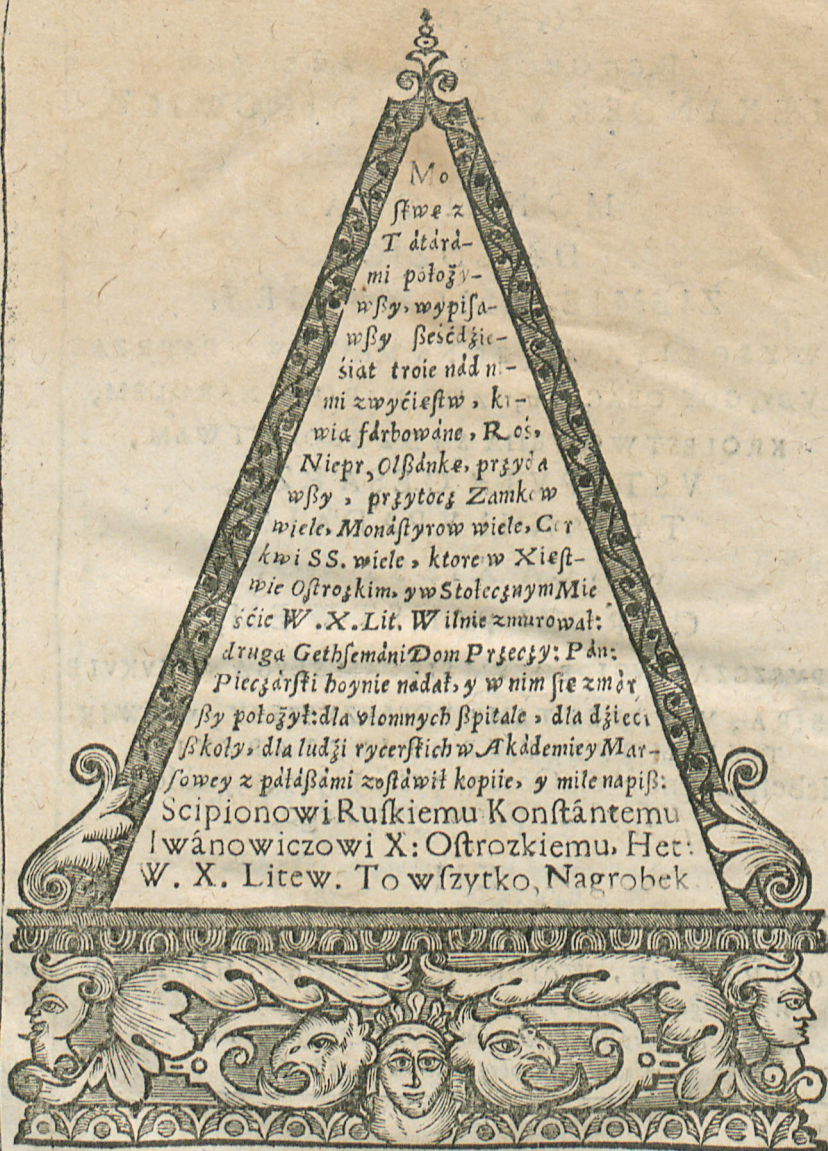 Mo
ſkwę z
Tátárá-
mi położy-
wßy, wypiſa-
wßy ßeśćdźie-
śiąt troie nád ni-
mi zwyćięſtw, kr-
wią fárbowáne, Roś,
Niepr, Olßánkę, przyda
wßy, przytocz Zamkow
wiele, Monáſtyrow wiele, Cer
kwi SS. wiele, ktore w Xięſt-
wie Oſtrozkim, y w Stołecznym Mie
śćie W. X. Lit. Wilnie zmurował:
druga Gethſemáni Dom Przeczy: Pán:
Pieczárſki hoynie nádał, y w nim ſię zmár
ßy położył: dla vłomnych ßpitale, dla dźieci
ßkoły, dla ludźi rycerſkich w Akádemiey Mar-
ſowey z páłáßámi zoſtáwił kopiie, y mile napiß:
Scipionowi Ruſkiemu Konſtántemu
Iwánowiczowi X: Oſtrozkiemu, Het:
W. X. Litew. To wſzytko, Nagrobek